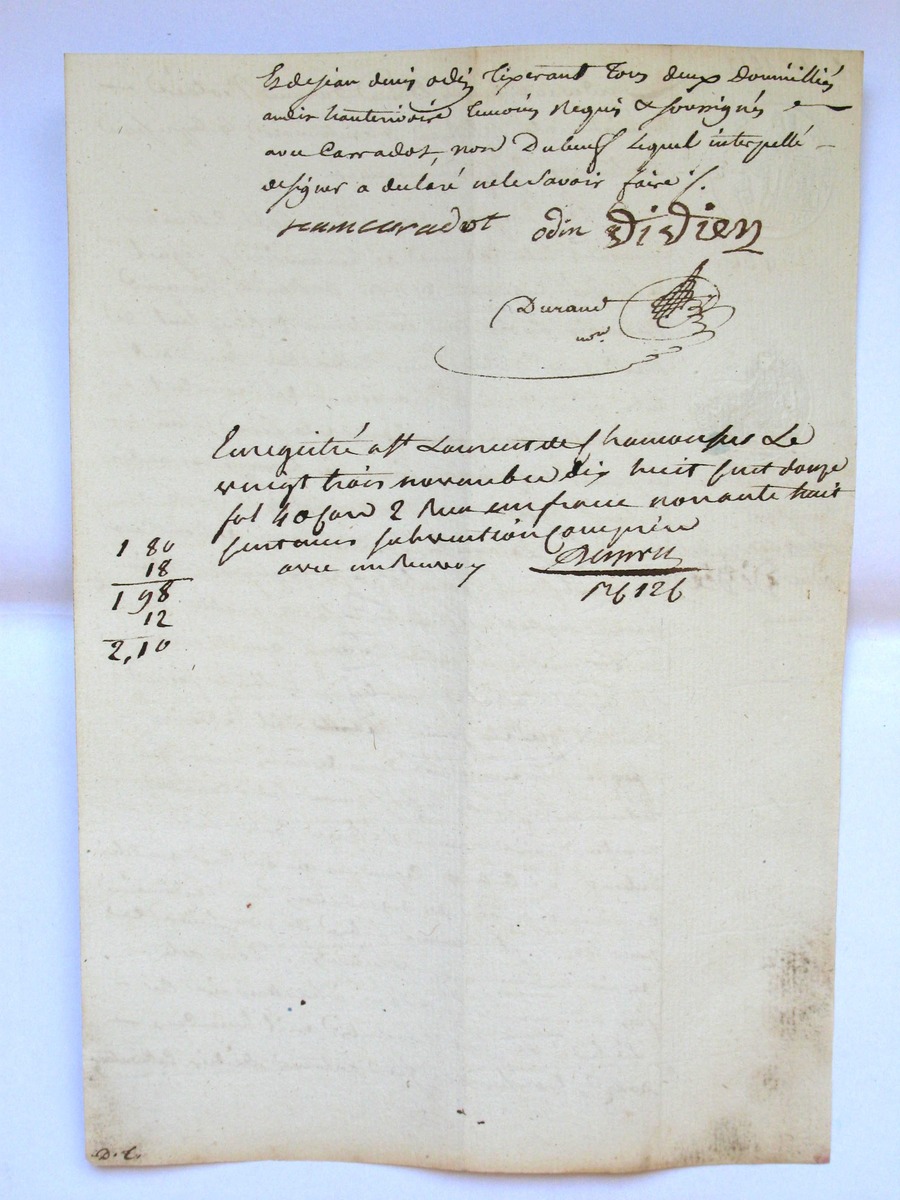 Et de jean denis odin tixerant tous deux domiciliés
audit hauterivoire temoins requis & soussignés
avec Carradot, non Dubeuf lequel interpellé
designer a déclaré ne le savoir faire ./.
jeamcaradot odin Didien
Durand
no.re
Enregistré a St Laurent de Chamousset Le
vingt trois novembre dix huit cent douze
fol 40 Care 2 Reçu un franc nonante huit
centimes subvention Comprise
avec un Renvoy
1 80
18
1 98
12
2,10
D. C.